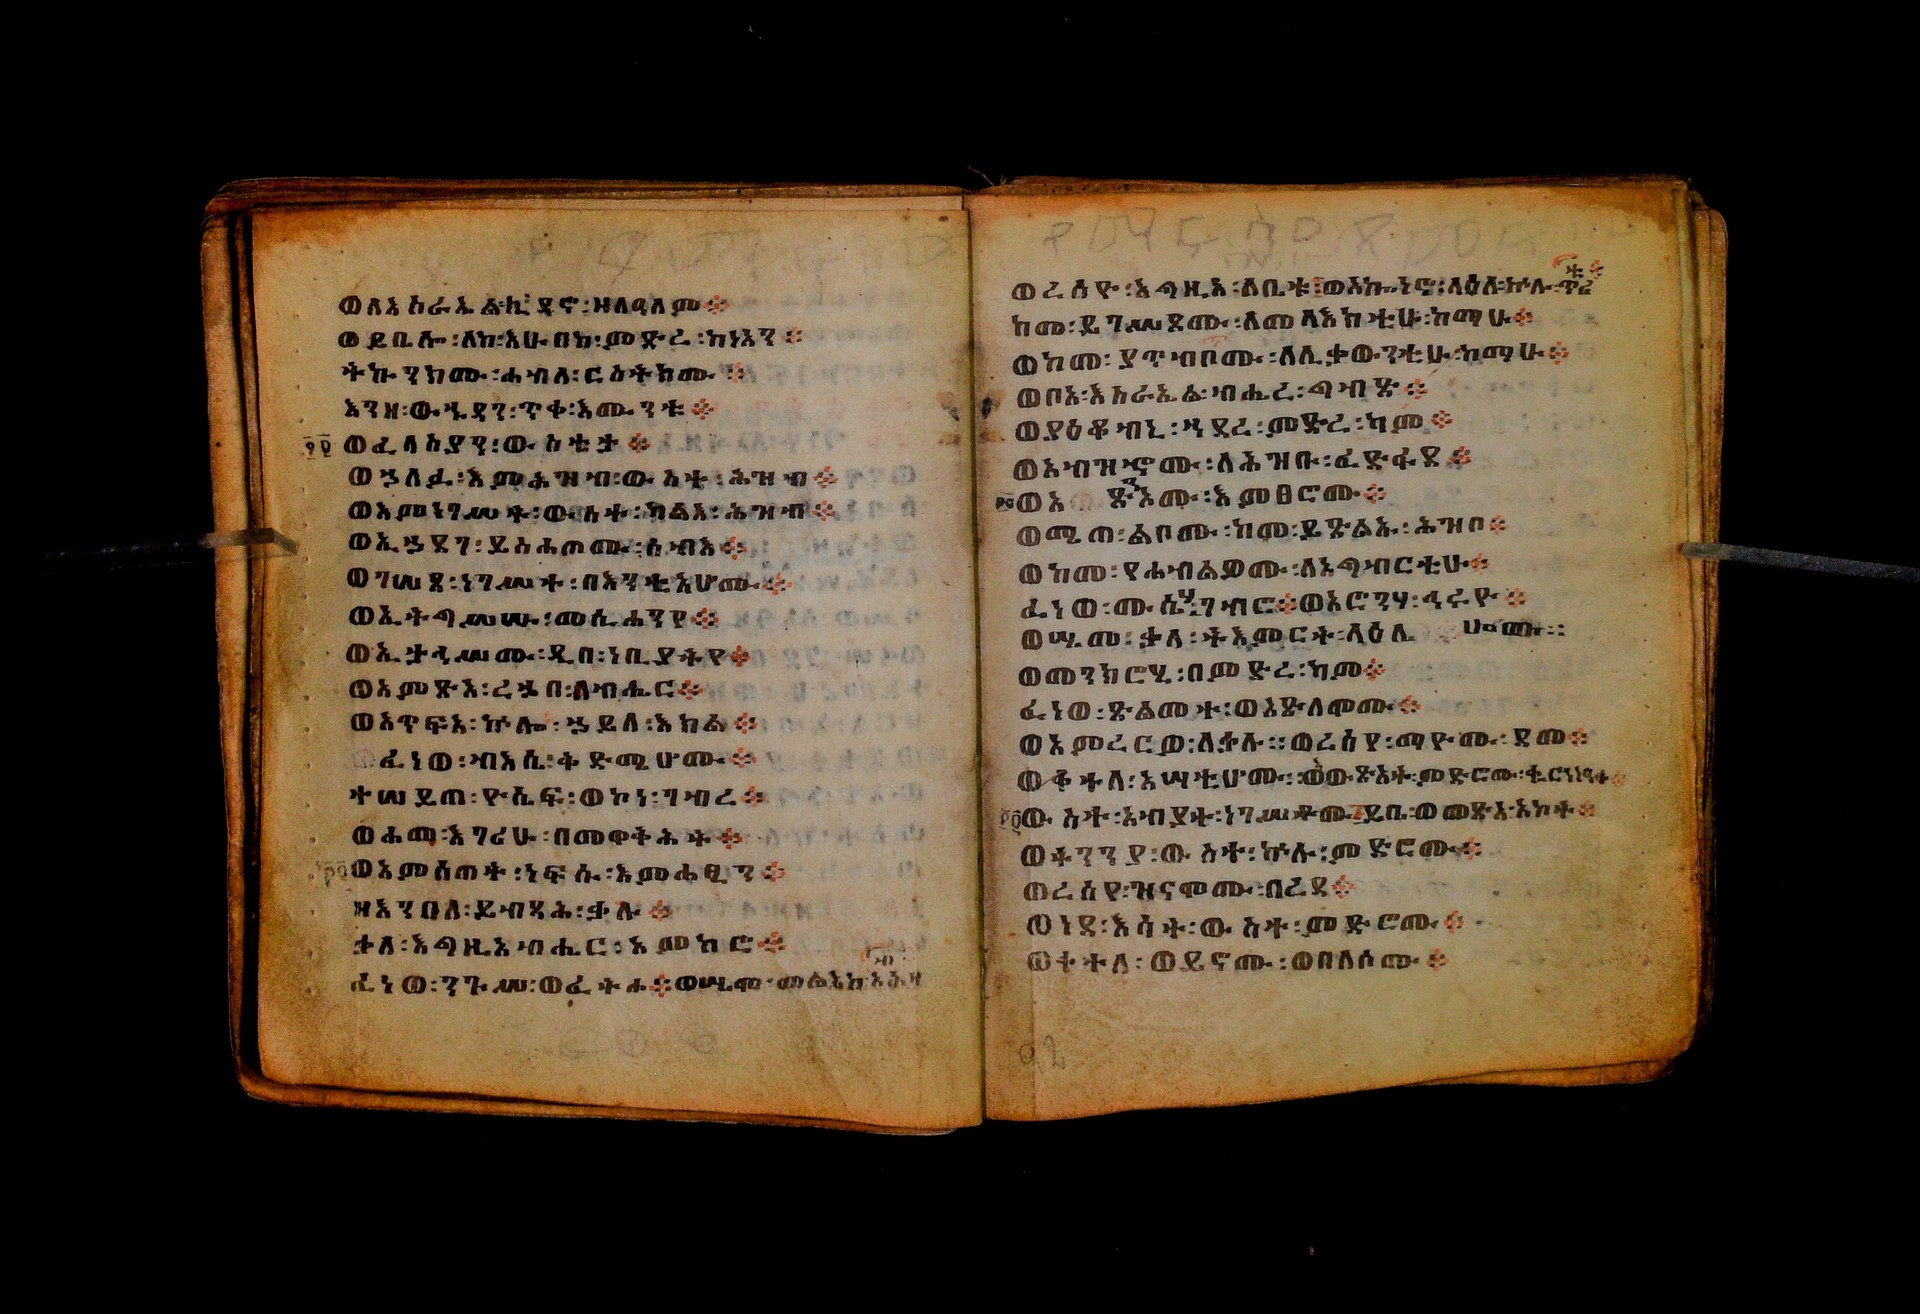 ወለእስራኤልኒ፡ ኪዳኖ፡ ዘለዓለም፨
ወይቤሎ፡ ለከ፡ እሁበከ፡ ምድረ፡ ከነአን፨
ትኩንክሙ፡ ሐብለ፡ ርስትክሙ፨
እንዘ፡ ውኁዳን፡ ጥቀ፡ እሙንቱ፨
ወፈላስያን፡ ውስቴታ፨
ወኀለፈ፡ እምሕዝብ፡ ውስተ፡ ሕዝብ፨
ወእምነገሥት፡ ውስተ፡ ካልእ፡ ሕዝብ፨
ወኢኀደገ፡ ይስሐጦሙ፡ ሰብእ፨
ወገሠጸ፡ ነገሥተ፡ በእንቲአሆሙ፨
ወኢትግሥሡ፡ መሲሐንየ፨
ወኢታሕሥሙ፡ ዲበ፡ ነቢያትየ፨
ወአምጽአ፡ ረኃበ፡ ለብሔር፨
ወአጥፍአ፡ ኵሎ፡ ኃይለ፡ እክል፨
ፈነወ፡ ብእሴ፡ ቅድሜሆሙ፨
ተሠይጠ፡ ዮሴፍ፡ ወኮነ፡ ገብረ፨
ወሐማ፡ እገሪሁ፡ በመዋቅሕት፨
ወአምሰጠት፡ ነፍሱ፡ እምሐፂን፨
ዘእንበለ፡ ይብጻሕ፡ ቃሉ፨
ቃለ፡ እግዚአብሔር፡ አምከሮ፨
ፈነወ፡ ንጉሠ፡ ወፈትሐ፨ ወሤሞ፡ መልአከ፡ አሕዛብ
ወረሰዮ፡ እግዚአ፡ ለቤቱ፨ ወአኰነኖ፡ ላዕለ፡ ኵሉ፡ ጥሪቱ፨
ከመ፡ ይገሥጾሙ፡ ለመላእክቲሁ፡ ከማሁ፨
ወከመ፡ ያጥብቦሙ፡ ለሊቃውንቲሁ፡ ከማሁ፨
ወቦአ፡ እስራኤል፡ ብሔረ፡ ግብጽ፨
ወያዕቆብኒ፡ ኀደረ፡ ምድረ፡ ካም፨
ወአብዝኆሙ፡ ለሕዝቡ፡ ፈድፋደ፨
ወአጽንዖሙ፡ እምፀሮሙ፨
ወሜጠ፡ ልቦሙ፡ ከመ፡ ይጽልኡ፡ ሕዝቦ፨
ወከመ፡ የሐብልይዎሙ፡ ለአግብርቲሁ፨
ፈነወ፡ ሙሴሃ፡ ገብሮ፨ ወአሮንሃ፡ ኅሩዮ፨
ወሤመ፡ ቃለ፡ ትእምርት፡ ላዕሌሆሙ፡፡
ወመንክሮሂ፡ በምድረ፡ ካም፨
ፈነወ፡ ጽልመተ፡ ወአጽለሞሙ፨
ወአምረርዎ፡ ለቃሉ፡፡ ወረሰየ፡ ማዮሙ፡ ደመ፨
ወቀተለ፡ ዓሣቲሆሙ፡፡ ወአውጽአት፡ ምድሮሙ፡ ቈርነነዓተ፨
ውስተ፡ አብያተ፡ ነገሥቶሙ፨ ይቤ፡ ወመጽአ፡ አኮት፨
ወትንንያ፡ ውስተ፡ ኵሉ፡ ምድሮሙ፨
ወረሰየ፡ ዝናሞሙ፡ በረደ፨
ወነደ፡ እሳት፡ ውስተ፡ ምድሮሙ፨
ወቀተለ፡ ወይኖሙ፡ ወበለሶሙ፨